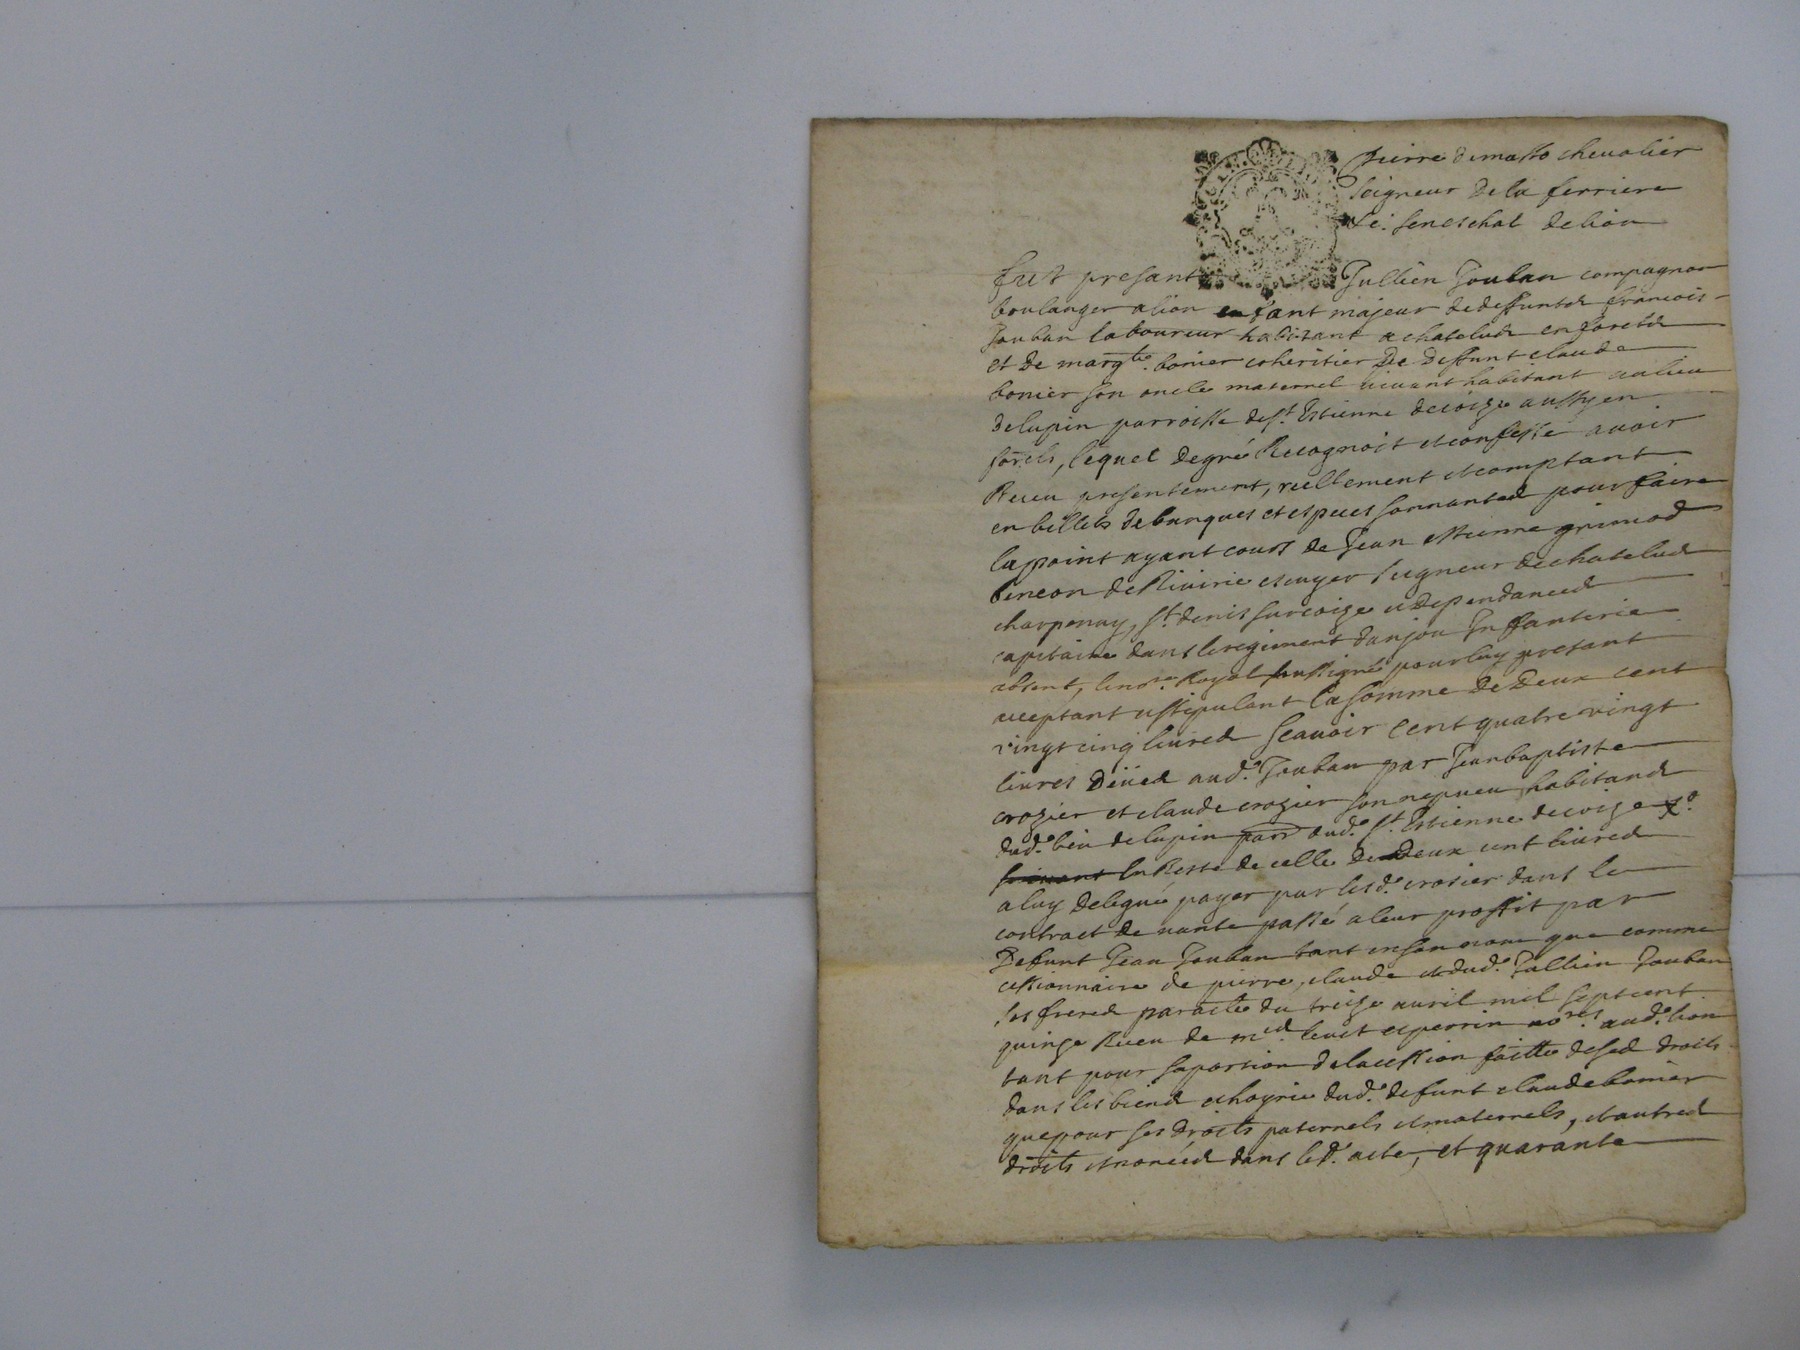 Pierre de masso chevalier
Seigneur de la ferriere
Se: seneschal de lion
fut presant Jullien Jouban compagnon
boulanger a lion enfant majeur de deffuntz francois
Jouban laboureur habitant a chatelud en foretz
et de margte. bonier coheritier De Deffunt claude
bonier son oncle maternel vivant habitant au lieu
de lupin parroisse de st. Estienne de coize aussy en
foretz, lequel de gré Recognoit et confesse avoir
Receu presentement, reellement et comptant
en billets de banques et especes sonnantes pour faire
la point ayant cours de Jean estienne grimod
beneon de Rivirie escuyer seigneur de chatelud
charpenay, st. denis sur coize et dependances
capitaine dans le regiment danjou Infanterie
absent, le nore. Royal soussigné pour luy presant
acceptant et stipulant la somme de Deux cent
vingt cinq livres scavoir cent quatre vingt
livres Düed aud. Jouban par Jean baptiste
crozier et claude crozier son nepveu habitand
dud. lieu de lupin parr dud. st. Estienne de coize
la Reste de celle de Deux cent livres
a luy deleguée payer par lesd. crosier dans le
contract de vante passé a leur proffit par
Defunt Jean Jouban tant en son nom que comme
cessionnaire de pierre, claude et dud. Jullien Jouban
ses freres par acte du treize avril mil sept cent
quinze Receu de med. et perrin nores. aud. lion
tant pour sa portion de la cession faitte de ses droits
dans les biend et hoyrie dud. defunt claude bonier
que pour ses droits paternels et maternels, et autred
droits enoncéd dans led. acte, et quarante